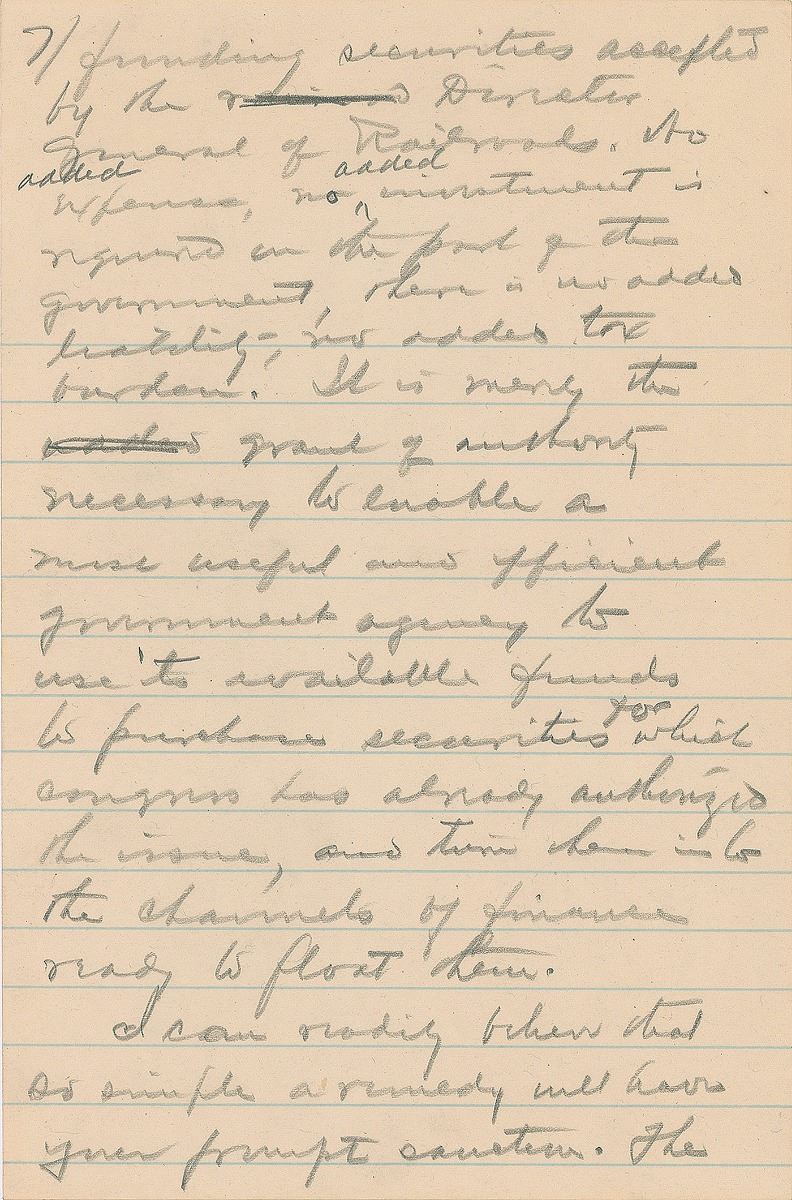 7/ funding securities accepted
by the Director
General of Railroads. No
added expense, no added investment is
required on the part of the
government, there is no added
liability, no added tax
burden. It is merely the
added grant of authority
necessary to enable a
most useful and efficient
government agency to
use its available funds
to purchase securities for which
congress has already authorized
the issue, and turn them into
the channels of finance
ready to float them.
I can readily believe that
so simple a remedy will have
your prompt sanction. The